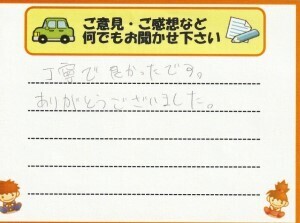 ご意見・ご感想など
何でもお聞かせ下さい
丁寧で良かったです。
ありがとうございました。